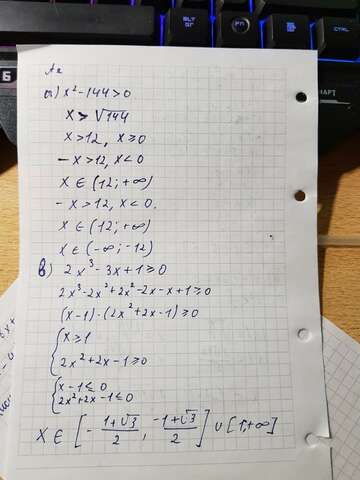 BLT
GR
FN
CTRL
6
Аа
а) x² - 144 > 0
x > √144
x > 12, x ≥ 0
- x > 12, x < 0
x ∈ (12; +∞)
- x > 12, x < 0.
x ∈ (12; +∞)
x ∈ (-∞; -12)
в) 2x³ - 3x + 1 ≥ 0
2x³ - 2x² + 2x² - 2x - x + 1 ≥ 0
(x - 1) · (2x² + 2x - 1) ≥ 0
{ x ≥ 1
2x² + 2x - 1 ≥ 0
{ x - 1 ≤ 0
2x² + 2x - 1 ≤ 0
x ∈ [ - (1 + √3)/2 , (-1 + √3)/2 ] ∪ [1, +∞]